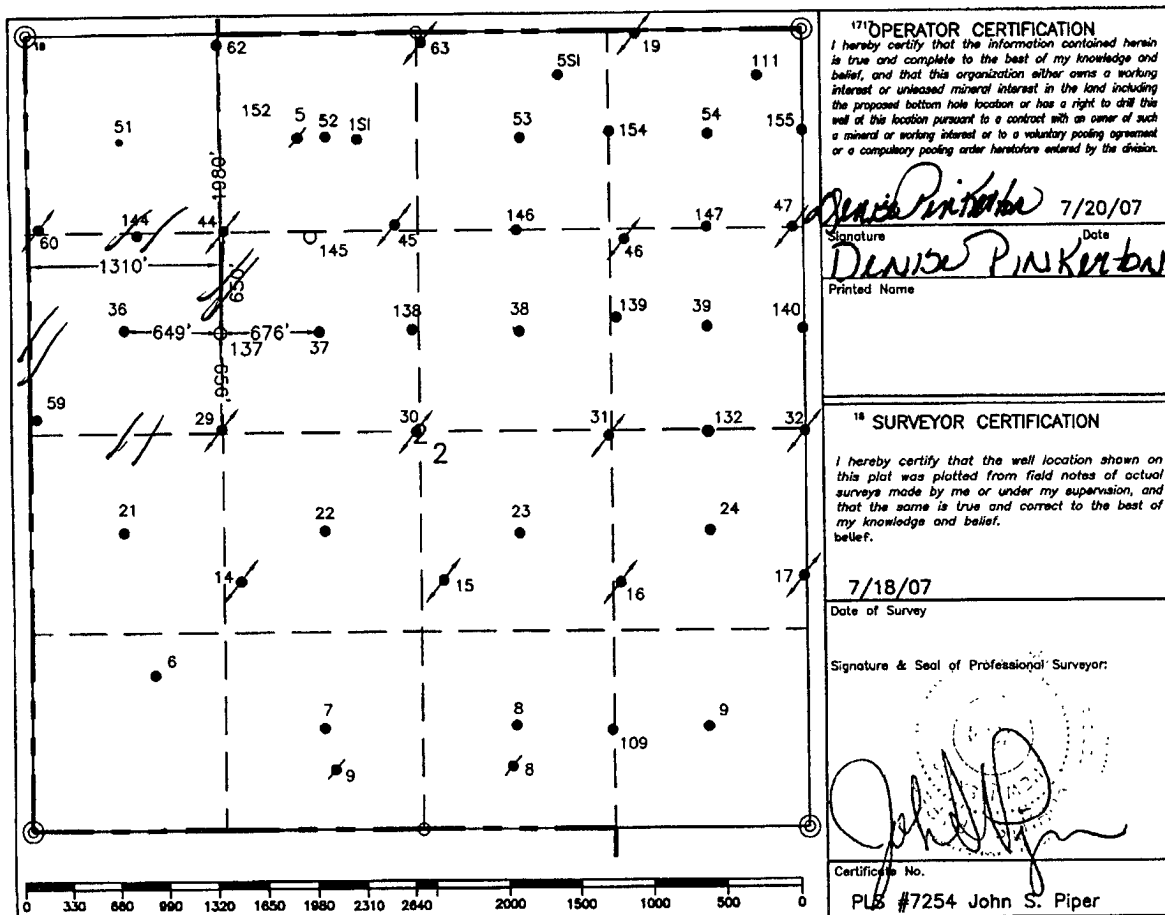 18
62
63
19
5SI
111
51
152
5
52
1SI
53
154
54
155
1980'
60
144
44
145
45
146
46
147
47
1310'
650'
36
649'
676'
137
37
138
38
139
39
140
656'
59
29
30
2
31
132
32
21
22
23
24
14
15
16
17
6
7
8
109
9
9
8
0
330
660
990
1320
1650
1980
2310
2640
2000
1500
1000
500
0
1717 OPERATOR CERTIFICATION
I hereby certify that the information contained herein
is true and complete to the best of my knowledge and
belief, and that this organization either owns a working
interest or unleased mineral interest in the land including
the proposed bottom hole location or has a right to drill this
well at this location pursuant to a contract with an owner of such
a mineral or working interest or to a voluntary pooling agreement
or a compulsory pooling order heretofore entered by the division.
Denise Pinkerton 7/20/07
Signature Date
DENISE PINKERTON
Printed Name
18 SURVEYOR CERTIFICATION
I hereby certify that the well location shown on
this plat was plotted from field notes of actual
surveys made by me or under my supervision, and
that the same is true and correct to the best of
my knowledge and belief.
belief.
7/18/07
Date of Survey
Signature & Seal of Professional Surveyor:
Certificate No.
PLS #7254 John S. Piper